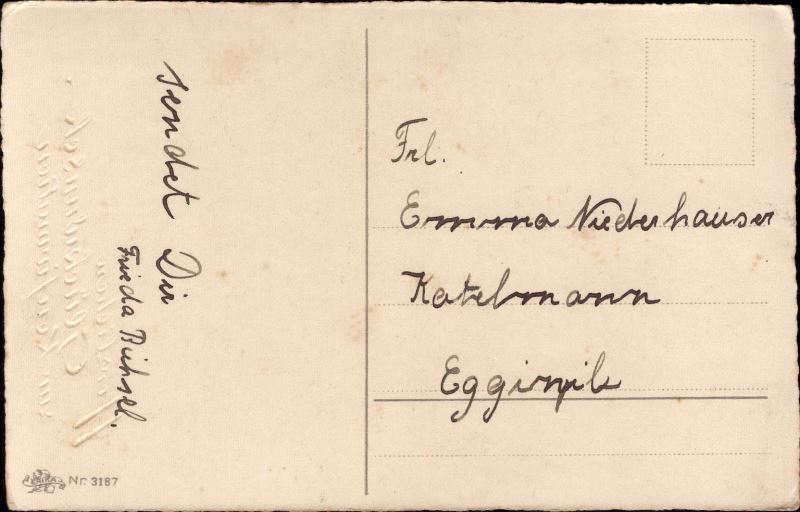 sendet Dir
Frieda Bichsel.
Frl.
Emma Niederhauser
Katelmann
Eggiwyl
ERIKA
Nr. 3187